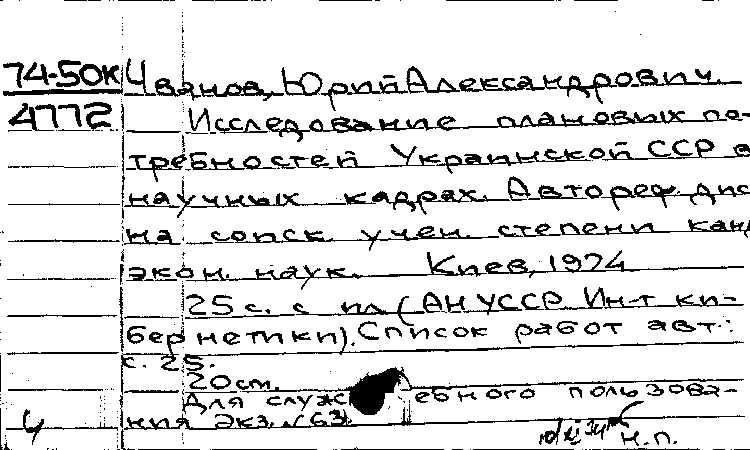 74-50К Иванов, Юрий Александрович.
4772 Исследование плановых по-
требностей Украинской ССР в
научных кадрах. Автореф. дис
на соиск. учен. степени канд
экон. наук. Киев, 1974
25 с. с ил (АН УССР. Ин-т ки-
бернетики). Список работ авт.:
с. 25.
20 см.
Для служебного пользова-
ния Экз. №63
Ч н.п.